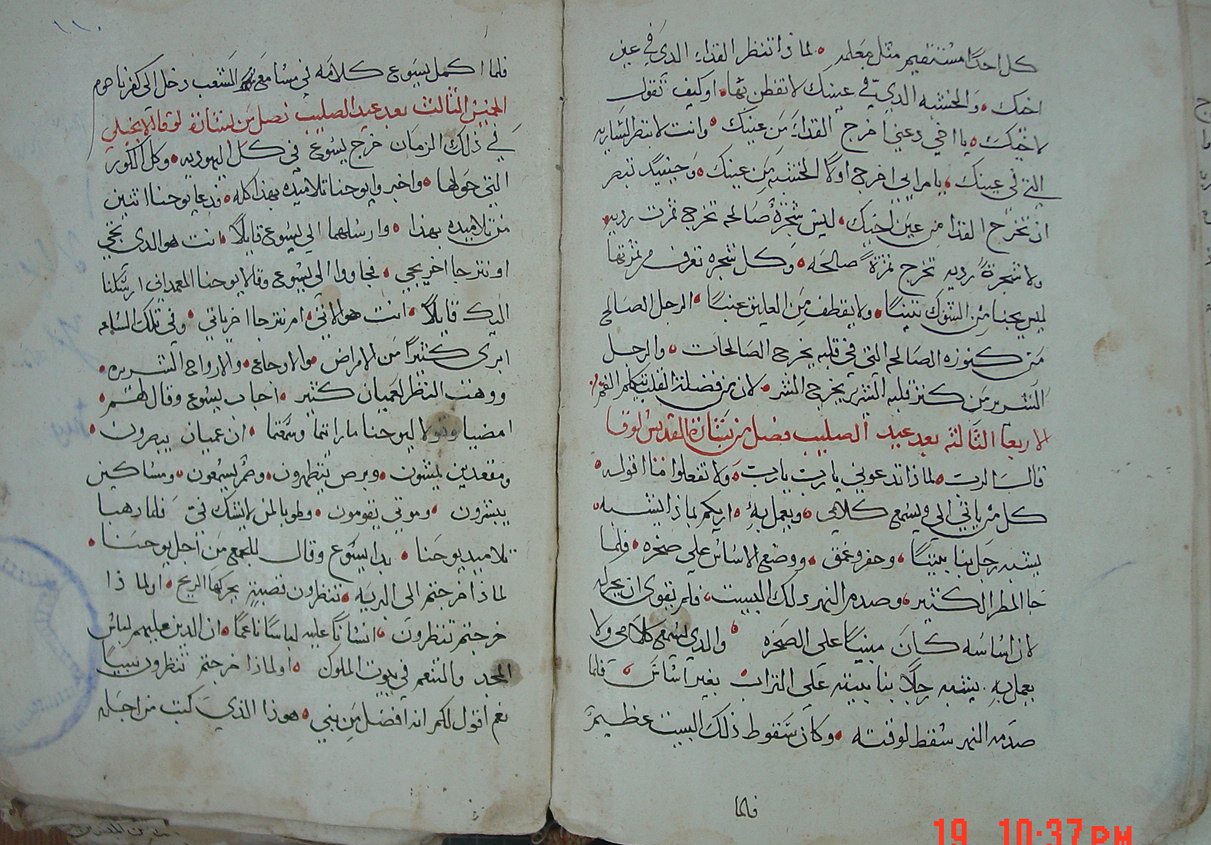 كل احدًا مستقيم مثل معلمه لماذا تنظر القذاء الذي في عين
اخيك والخشبه الذي في عينك لا تفطن بها او كيف تقول
لاخيك يا اخي دعني اخرج القذاء من عينك وانت لا تنظر الساريه
التي في عينك يا مرايي اخرج اولاً الخشبه من عينك وحينيذ تبصر
ان تخرج القذا من عين اخيك ليس شجرة صالحه تخرج ثمرت رديه
ولا شجرة رديه تخرج ثمرة صالحه وكل شجره تعرف من ثمرتها
ليس يجنا من الشوك تينًا ولا يقطف من العليق عنبًا الرجل الصالح
من كنوزه الصالحه التي في قلبه يخرج الصالحات والرجل
الشرير من كنز قلبه الشرير يخرج الشر لان من فضلة القلب يتكلم الفم
الاربعا الثالثه بعد عيد الصليب فصل من بشارة القديس لوقا
قال الرب لماذا تدعوني يا رب يا رب ولا تفعلوا ما اقوله
كل من ياتي الي ويسمع كلامي ويعمل به اريكم لماذا يشبه
يشبه رجل بنا بيتًا وحفر وعمق ووضع الاساس على صخره فلما
جا المطر الكثير وصدم النهر ذلك البيت فلم يقوى ان يحركه
لان اساسه كان مبنيًا على الصخره والذي يسمع كلامي ولا
يعمل به يشبه رجلًا بنا بيته على التراب بغير اساس فلما
صدمه النهر سقط لوقته وكان سقوط ذلك البيت عظيم
فلما
١١٠
فلما اكمل يسوع كلامه في مسامع الشعب دخل الى كفرناحوم
الخميس الثالث بعد عيد الصليب فصل من بشارة لوقا الانجيلي
في ذلك الزمان خرج يسوع في كل اليهوديه وكل الكور
التي حولها واخبروا يوحنا تلاميذه بهذا كله فدعا يوحنا اثنين
من تلاميذه بهذا وارسلهما الى يسوع قايلًا انت هو الذي تجي
او نترجا اخر يجي فجاووا الى يسوع وقالا يوحنا المعمداني ارسلنا
اليك قايلًا انت هو الاتي ام نترجا اخر ياتي وفي تلك الساعه
ابرى كثيرًا من الامراض والاوجاع والارواح الشريره
ووهب النظر لعميان كثير اجاب يسوع وقال لهم
امضيا وقولا ليوحنا ما راتما وسمعتما ان عميان يبصرون
ومقعدين يمشون وبرص يتطهرون وصم يسمعون ومساكين
يبشرون وموتى يقومون وطوبا لمن لا يشك في فلما ذهبا
تلاميذ يوحنا بدا يسوع وقال للجمع من اجل يوحنا
لماذا خرجتم الى البريه تنظرون قصبة يحركها الريح او لماذا
خرجتم تنظرون انسانًا عليه لباسًا ناعمًا ان الذين عليهم لباس
المجد والتنعم في بيوت الملوك او لماذا خرجتم تنظرون نبيًا
نعم اقول لكم انه افضل من نبي هوذا الذي كتب من اجله
19 10:37 PM